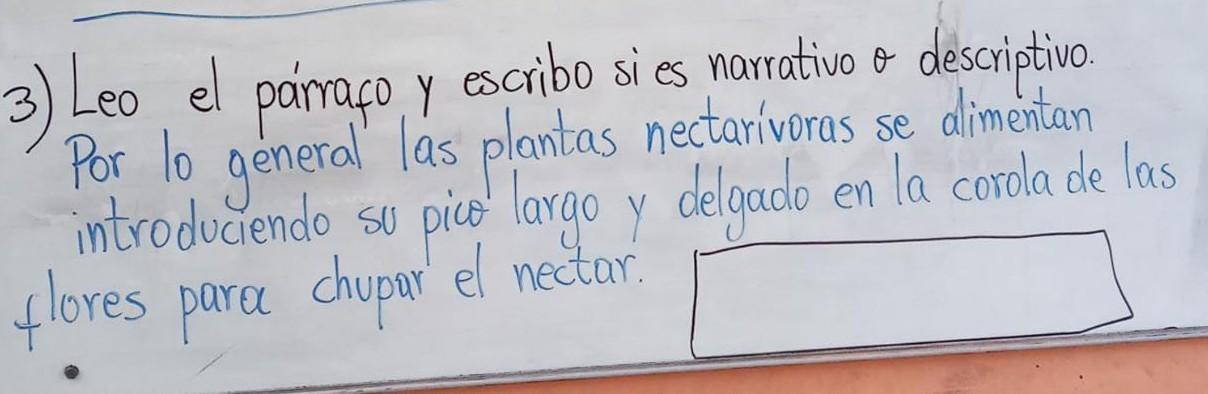 3) Leo el párrafo y escribo si es narrativo o descriptivo.
Por lo general las plantas nectarívoras se alimentan
introduciendo su pico largo y delgado en la corola de las
flores para chupar el nectar.